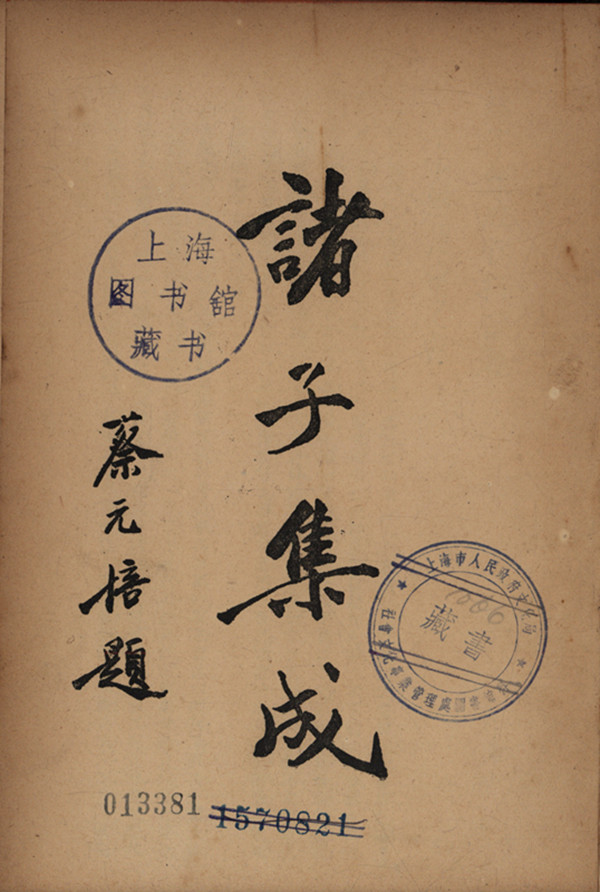 諸子集成
蔡元培題
上海
图书舘
藏书
上海市人民政府文化局
藏書
事業管理處圖書
013381
1570821